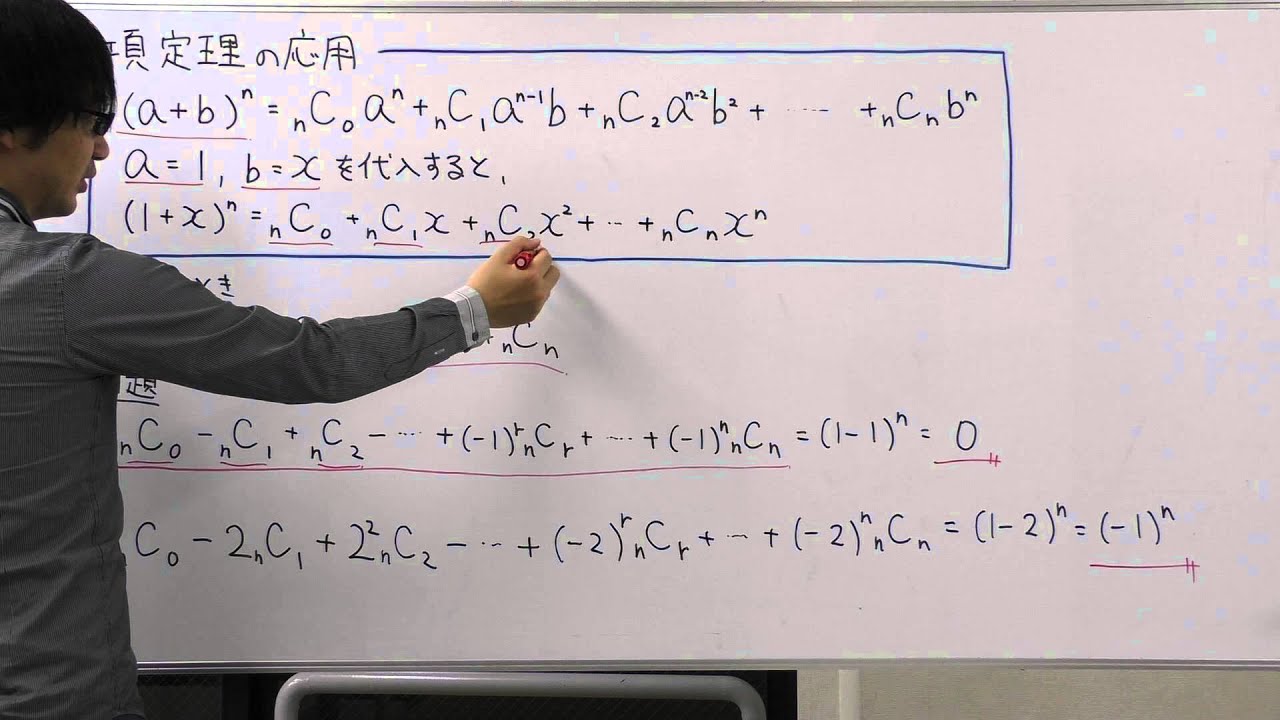 項定理の応用
(a+b)ⁿ = ₙC₀aⁿ + ₙC₁aⁿ⁻¹b + ₙC₂aⁿ⁻²b² + ⋯⋯ + ₙCₙbⁿ
a=1, b=x を代入すると,
(1+x)ⁿ = ₙC₀ + ₙC₁x + ₙC₂x² + ⋯ + ₙCₙxⁿ
とき
+ₙCₙ
題
ₙC₀ - ₙC₁ + ₙC₂ - ⋯ + (-1)ʳₙCᵣ + ⋯ + (-1)ⁿₙCₙ = (1-1)ⁿ = 0
C₀ - 2ₙC₁ + 2²ₙC₂ - ⋯ + (-2)ʳₙCᵣ + ⋯ + (-2)ⁿₙCₙ = (1-2)ⁿ = (-1)ⁿ